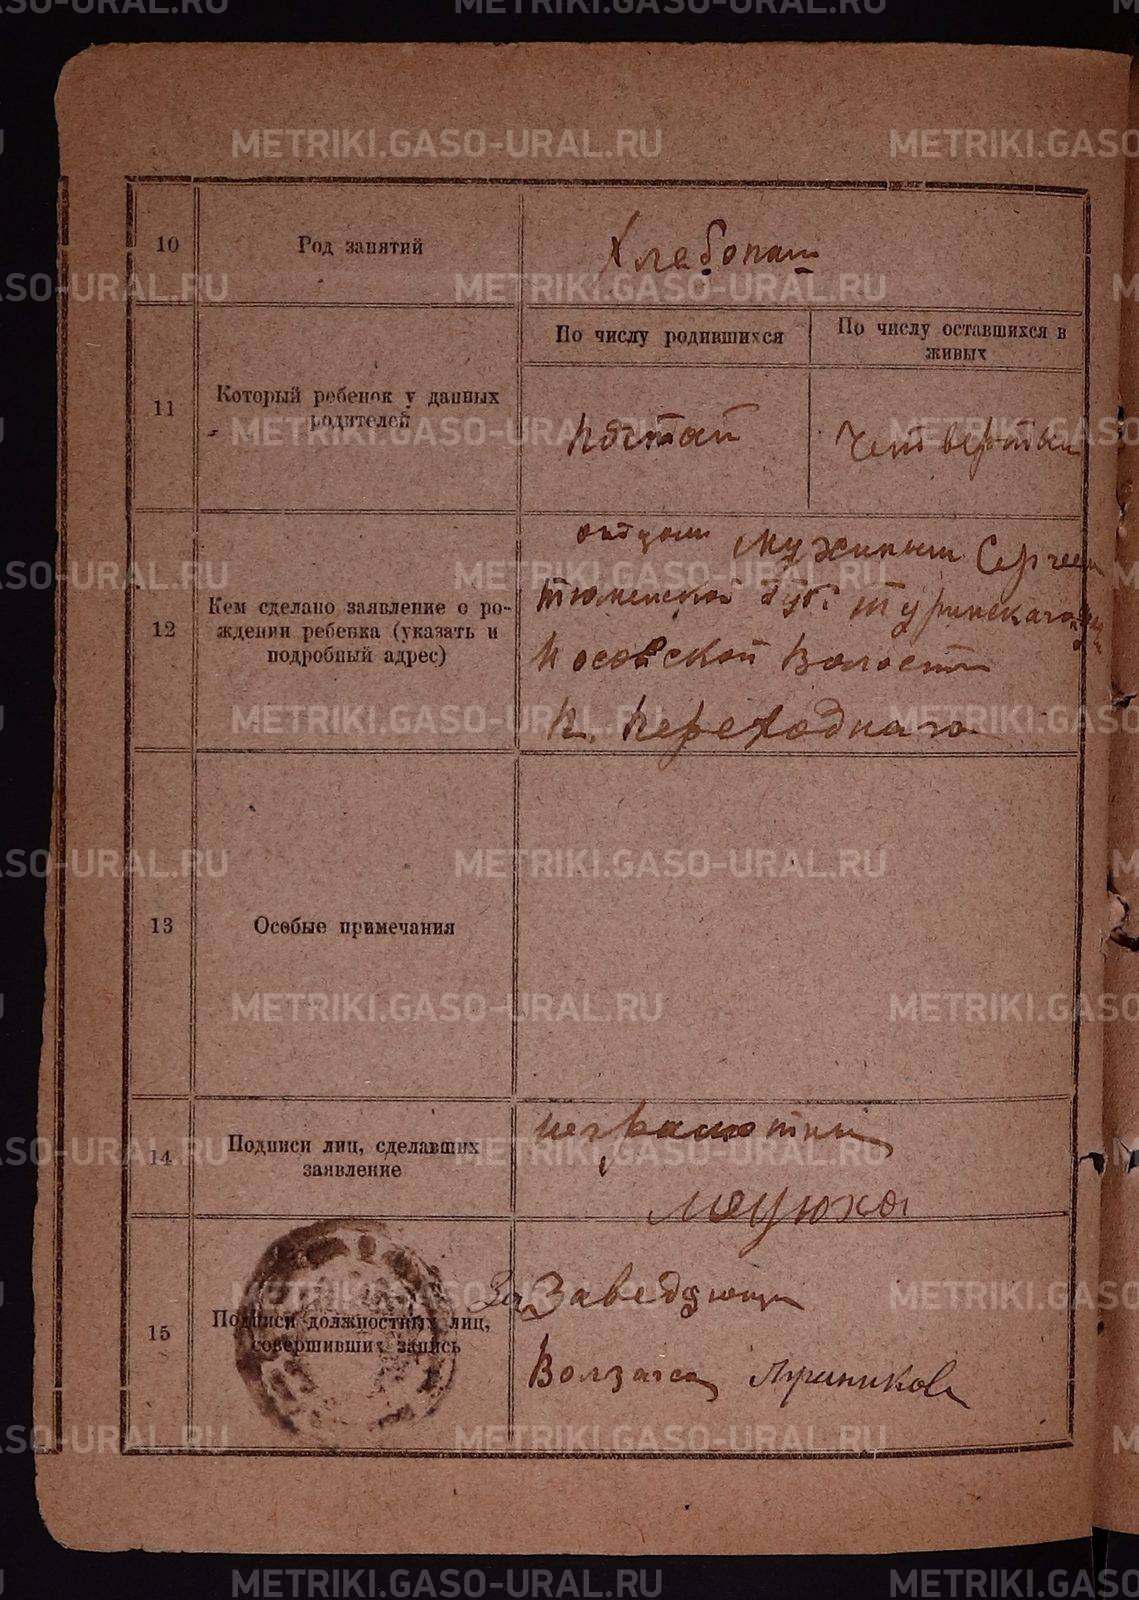 10
Род занятий
Хлебопаш
11
Который ребенок у данных
родителей
По числу родившихся
По числу оставшихся в
живых
пятай
Четвертый
12
Кем сделано заявление о ро-
ждении ребенка (указать и
подробный адрес)
отцом Сергеем
тюменской губ. туринскаго
волости
п. переходнаго
13
Особые примечания
14
Подписи лиц, сделавших
заявление
неграмотный
15
Подписи должностных лиц,
совершивших запись
За Заведующ
Волзагса
METRIKI.GASO-URAL.RU